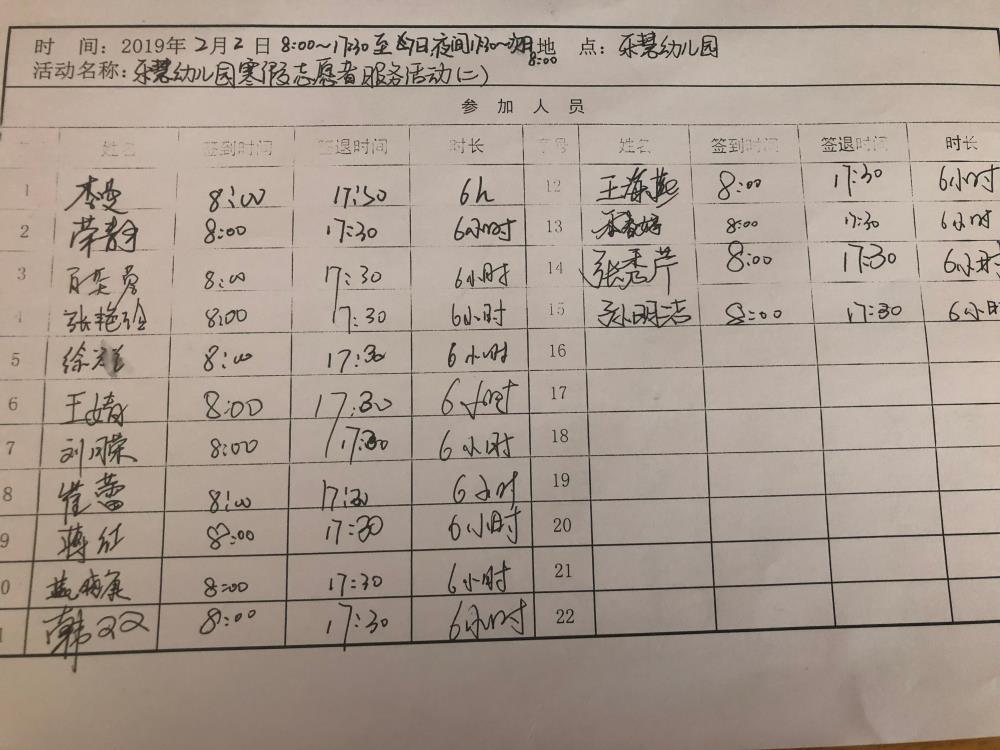 时 间：2019年 2月2 日 8:00～17:30至 夜间17:30～ 8:00 地 点：乐慧幼儿园
活动名称：乐慧幼儿园寒假志愿者服务活动(二)
参 加 人 员
姓名 签到时间 签退时间 时长 序号 姓名 签到时间 签退时间 时长
1 李曼 8:00 17:30 6h 12 王海燕 8:00 17:30 6小时
2 荣静 8:00 17:30 6小时 13 8:00 17:30 6小时
3 8:00 17:30 6小时 14 张秀芹 8:00 17:30 6小时
4 张艳玲 8:00 17:30 6小时 15 孙明洁 8:00 17:30 6小时
5 徐 8:00 17:30 6小时 16
6 王婧 8:00 17:30 6小时 17
7 刘 荣 8:00 17:30 6小时 18
8 崔蕾 8:00 17:30 6小时 19
9 蒋红 8:00 17:30 6小时 20
0 8:00 17:30 6小时 21
1 韩双双 8:00 17:30 6小时 22